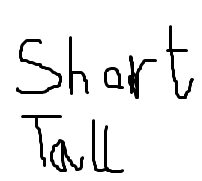 Short
Tall